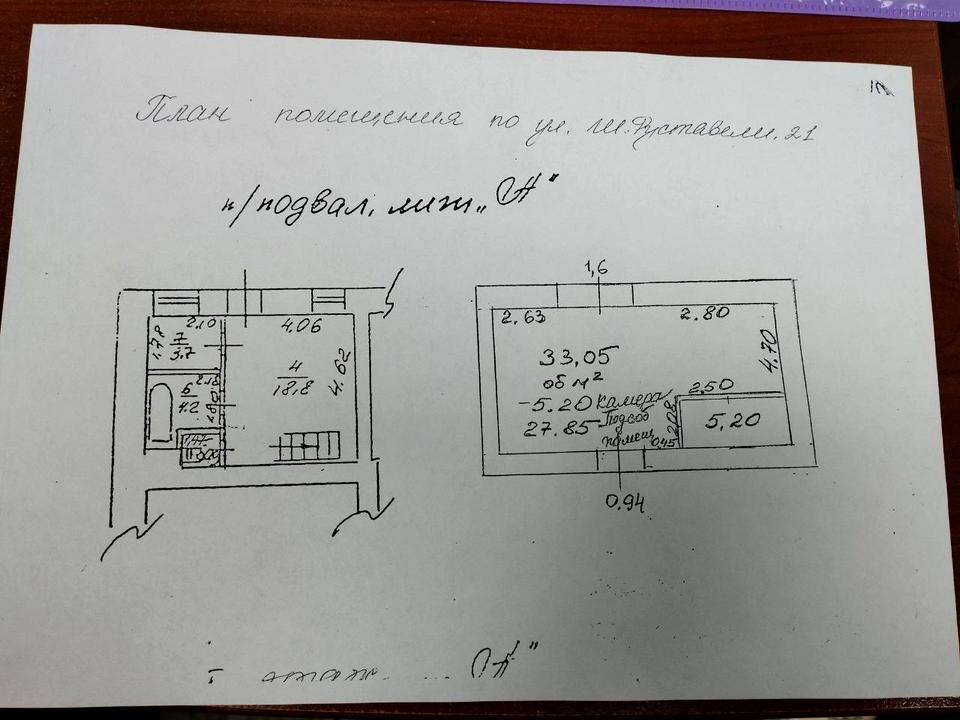 План помещения по ул. Ш.Руставели, 21
п/подвал, лит „А"
2.10
4.06
7
3.7
4
18,8
4.62
2.18
6
4.2
1,6
2.63
2.80
33,05
об м²
4.70
-5.20 камера
2,50
27.85 Подсоб
помещ
2,08
0,45
5,20
0.94
I этаж „А"